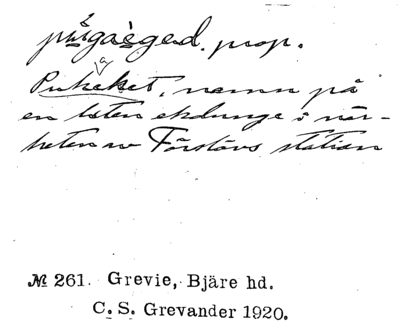 půgaègəd. prop.
Pukeket, namn på
en liten ekdunge i när-
heten av Förslövs station
№ 261. Grevie, Bjäre hd.
C. S. Grevander 1920.